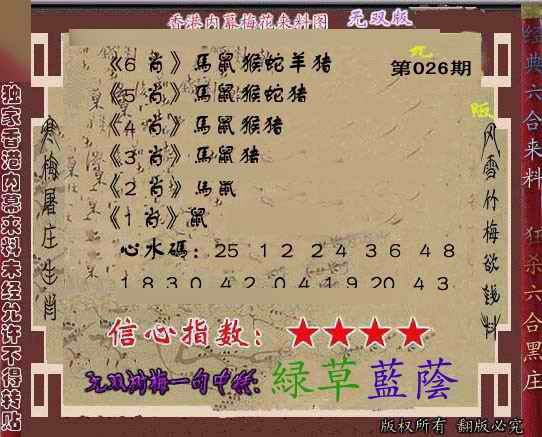 香港内幕梅花来料图 无双版
第026期
《6 肖》馬鼠猴蛇羊猪
《5 肖》馬鼠猴蛇猪
《4 肖》馬鼠猴猪
《3 肖》馬鼠猪
《2 肖》馬鼠
《1 肖》鼠
心水碼：25 12 24 36 48
18 30 42 04 19 20 43
信心指数：★★★★
绿草藍蔭
独家香港内幕来料未经允许不得转贴
寒梅屠庄生肖
风雪竹梅欲钱料
经典六合来料 狂杀六合黑庄
版权所有 翻版必究